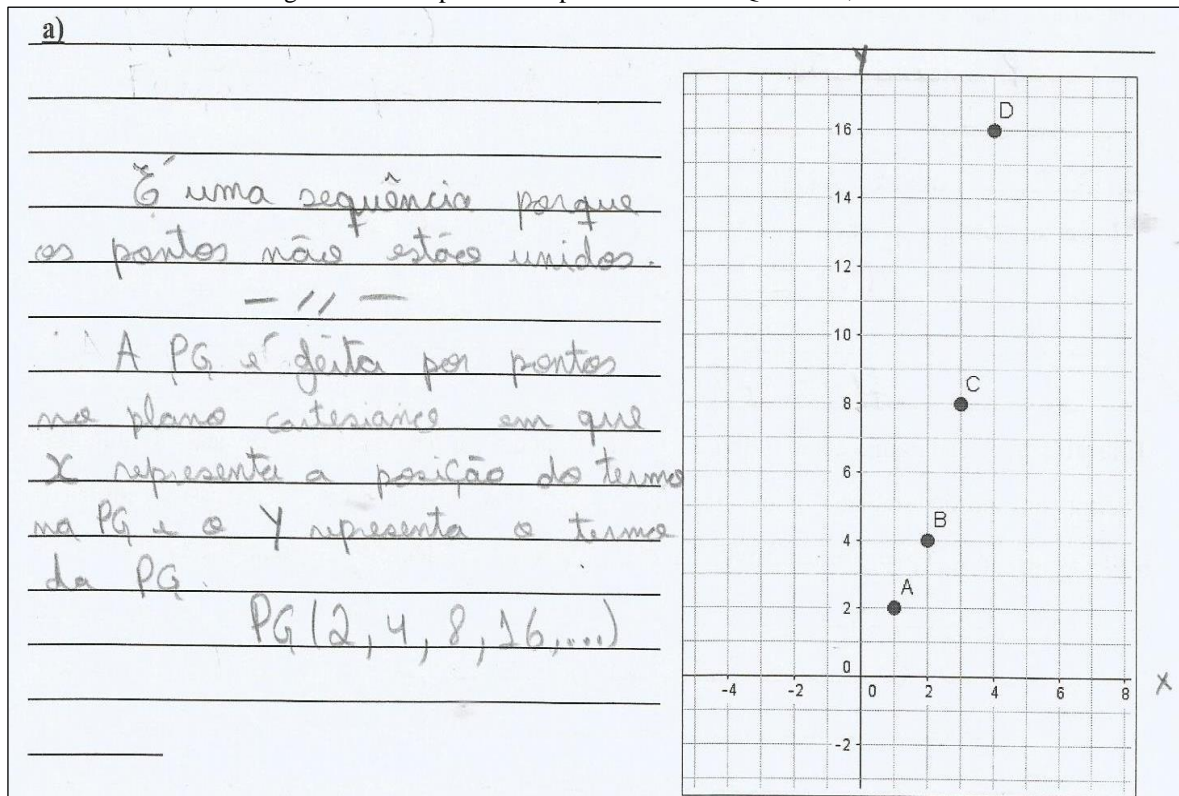 a)
É uma sequência porque
os pontos não estão unidos.
— // —
A PG é feita por pontos
no plano cartesiano em que
X representa a posição do termo
na PG e o Y representa o termo
da PG.
PG(2, 4, 8, 16, ...)
Y
16
14
12
10
8
6
4
2
0
-2
-4
-2
0
2
4
6
8
X
D
C
B
A